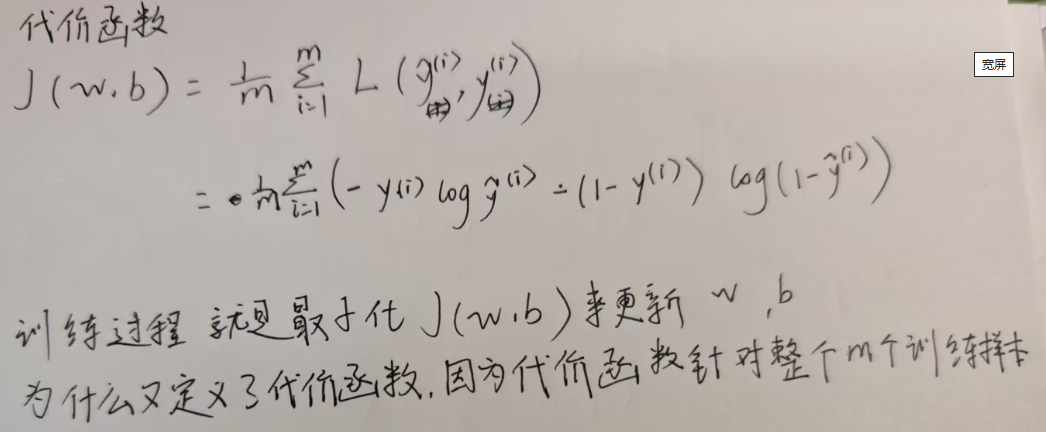 代价函数
宽屏
J(w,b) = 1/m Σ_{i=1}^{m} L(ŷ^{(i)}, y^{(i)})
= 1/m Σ_{i=1}^{m} (- y^{(i)} log ŷ^{(i)} - (1-y^{(i)}) log(1-ŷ^{(i)}))
训练过程 就是最小化 J(w,b) 来更新 w,b
为什么又定义了代价函数,因为代价函数针对整个m个训练样本